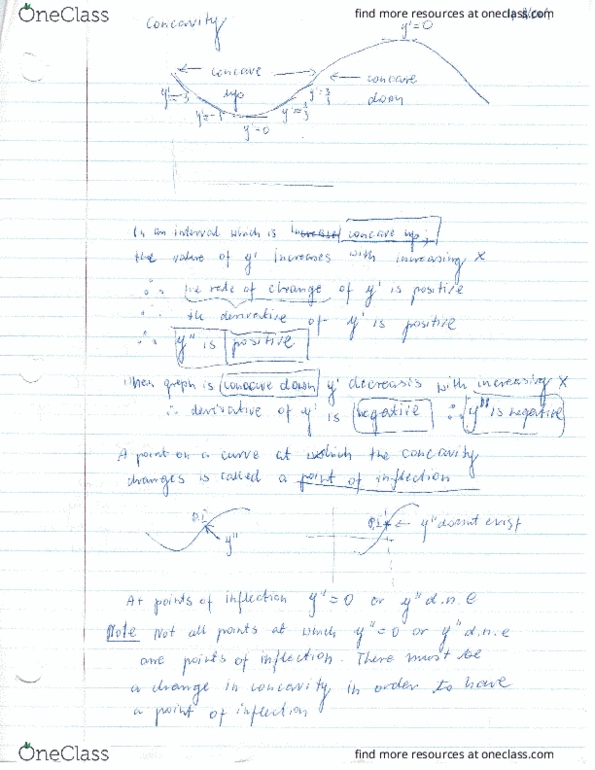 OneClass
find more resources at oneclass.com
Concavity
y'=0
concave
concave
up
down
y'=0
In an interval which is concave up;
the value of y' increases with increasing x
∴ the rate of change of y' is positive
∴ the derivative of y' is positive
∴ y" is positive
When graph is concave down y' decreasis with increasing x
∴ derivative of y' is negative ∴ y" is negative
A point on a curve at which the concavity
changes is called a point of inflection
P.I
P.I ← y" doesnt exist
y"
At points of inflection y"=0 or y" d.n.e
Note Not all points at which y"=0 or y" d.n.e
are points of inflection. There must be
a change in concavity in order to have
a point of inflection
OneClass
find more resources at oneclass.com